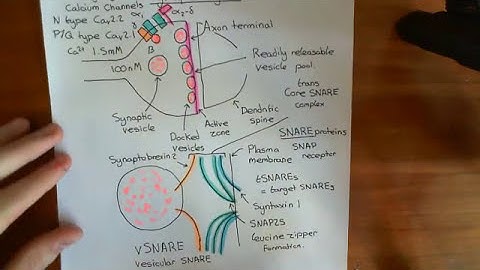 Calcium Channels
N type Cav2.2
P/Q type Cav2.1
α₁
α₂-δ
γ
β
Ca²⁺ 1.5mM
100nM
Axon terminal
Readily releasable
vesicle pool.
trans
Core SNARE
complex
Synaptic
vesicle
Docked
vesicles
Active
zone
Dendritic
spine
SNARE proteins
Synaptobrevin 2
Plasma
membrane
SNAP
receptor
tSNAREs
= target SNAREs
Syntaxin 1
SNAP25
Leucine zipper
formation.
vSNARE
Vesicular SNARE